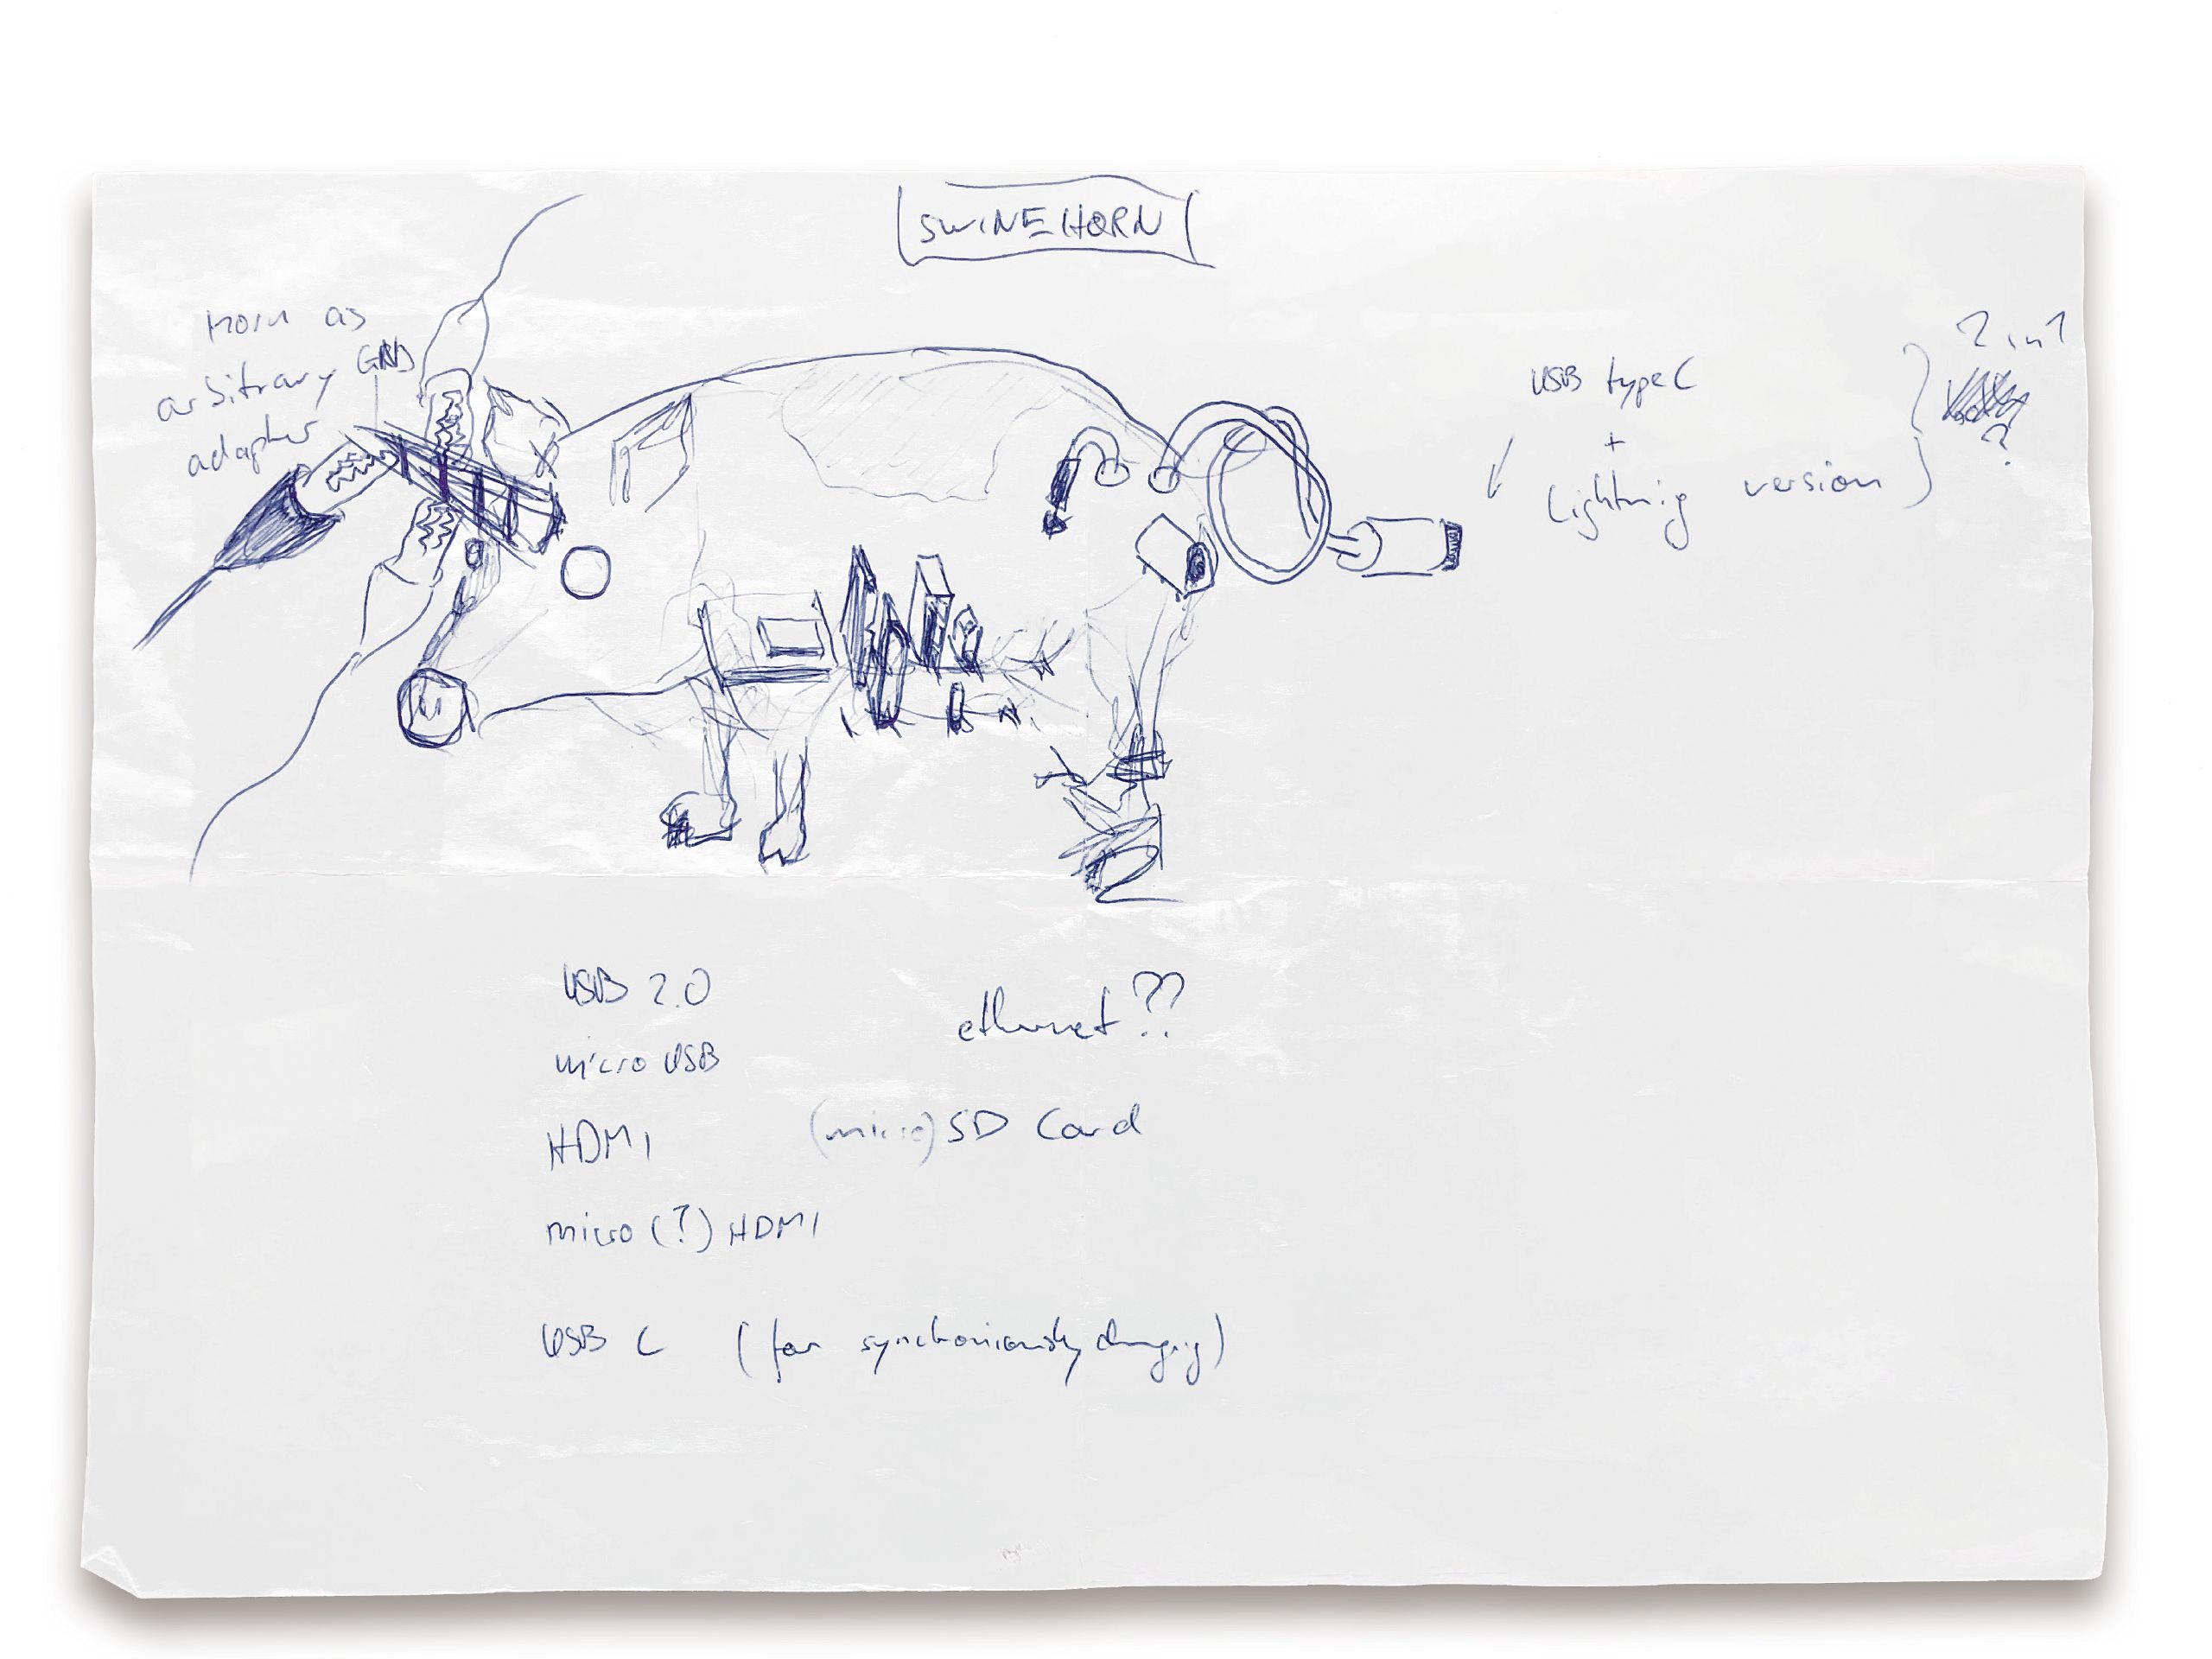 SWINEHORN
Horn as
arbitrary
adapter
GND
USB type C
+
Lightnig version
2 in 1
?
USB 2.0
micro USB
HDMI
micro (?) HDMI
USB C (for synchroniously charging)
ethernet??
(micro) SD Card